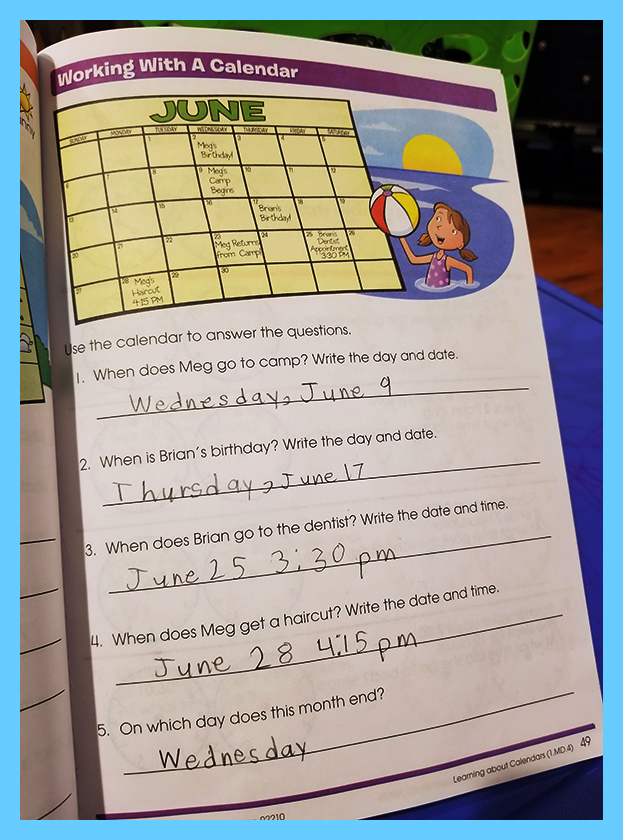 Working With A Calendar
JUNE
SUNDAY MONDAY TUESDAY WEDNESDAY THURSDAY FRIDAY SATURDAY
1 2 3 4 5
Meg's
Birthday!
6 7 8 9 10 11 12
Meg's
Camp
Begins
13 14 15 16 17 18 19
Brian's
Birthday!
20 21 22 23 24 25 26
Meg Returns
from Camp!
Brian's
Dentist
Appointment
3:30 PM
27 28 29 30
Meg's
Haircut
4:15 PM
Use the calendar to answer the questions.
1. When does Meg go to camp? Write the day and date.
Wednesday, June 9
2. When is Brian's birthday? Write the day and date.
Thursday, June 17
3. When does Brian go to the dentist? Write the date and time.
June 25 3:30 pm
4. When does Meg get a haircut? Write the date and time.
June 28 4:15 pm
5. On which day does this month end?
Wednesday
Learning about Calendars (1.MD.4) 49